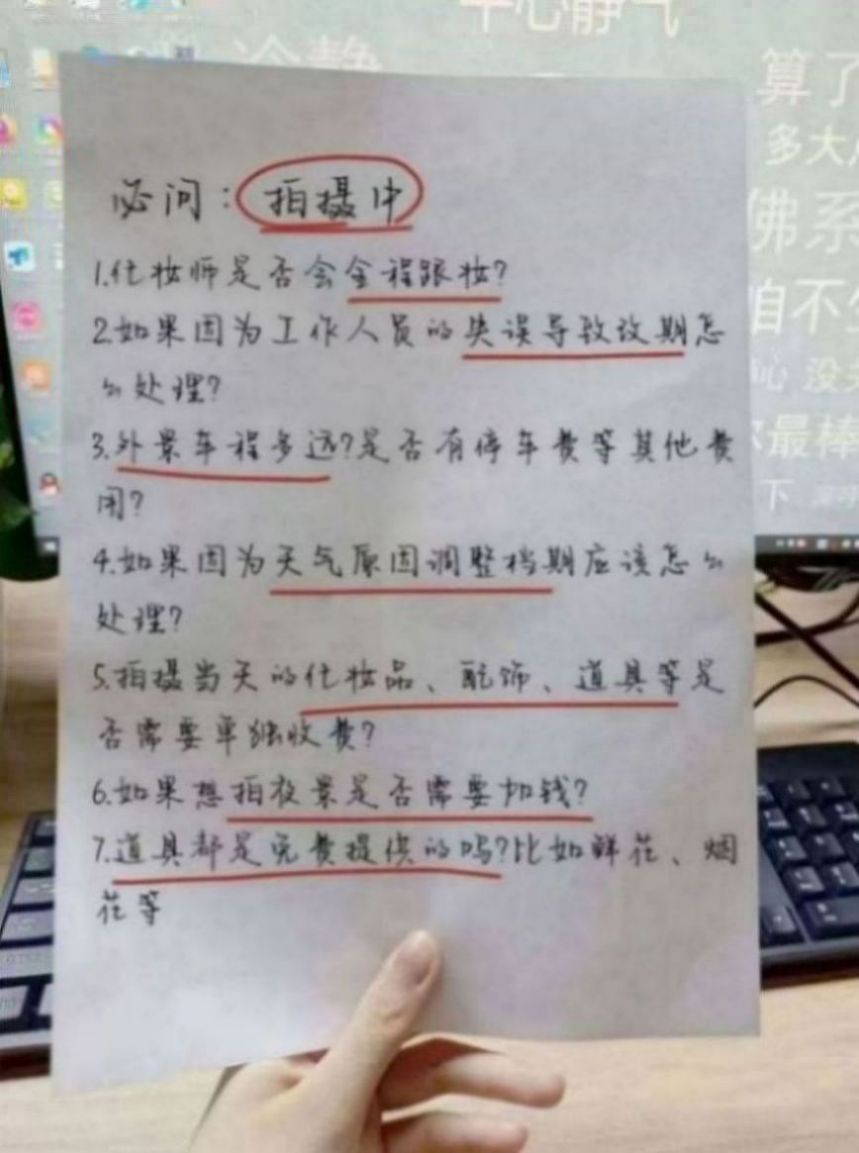 平心静气
冷静
算了
多大
佛系
咱不
心 没
最棒
下
必问：拍摄中
1.化妆师是否会全程跟妆？
2.如果因为工作人员的失误导致改期怎
么处理？
3.外景车程多远？是否有停车费等其他费
用？
4.如果因为天气原因调整档期应该怎么
处理？
5.拍摄当天的化妆品、配饰、道具等是
否需要单独收费？
6.如果想拍夜景是否需要加钱？
7.道具都是免费提供的吗？比如鲜花、烟
花等